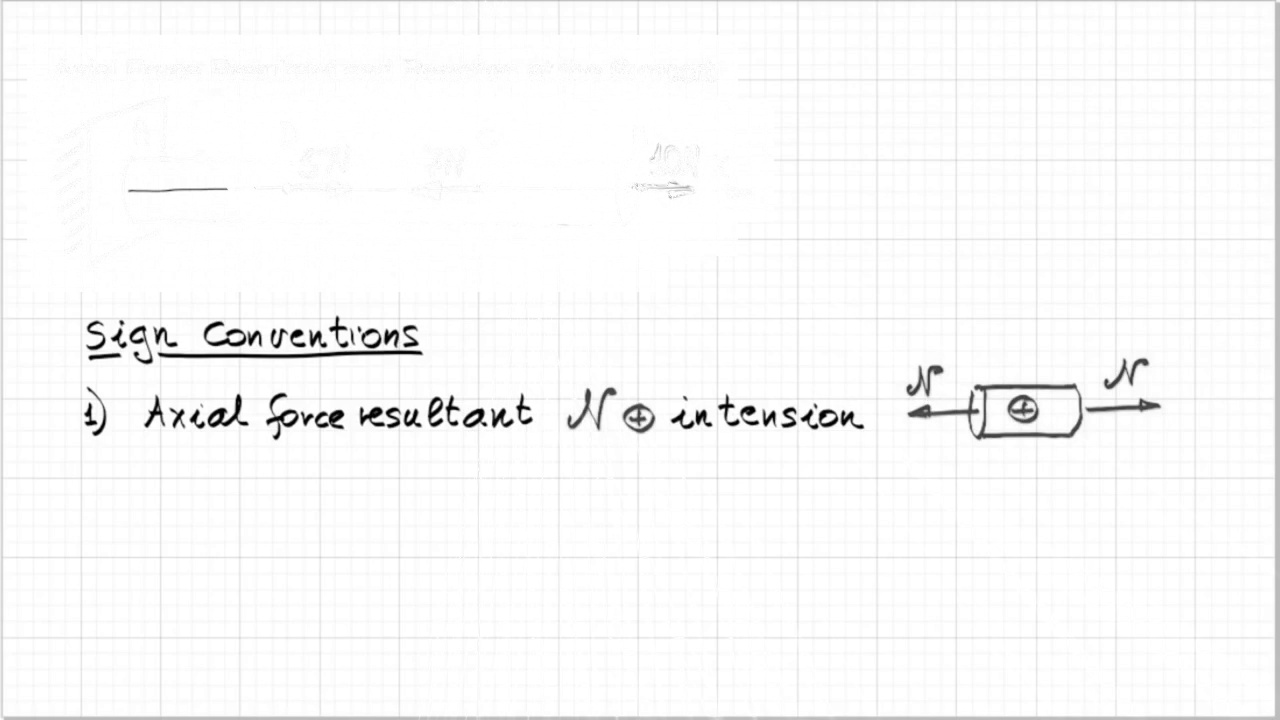 10N
Sign Conventions
1) Axial force resultant N ⊕ in tension
N ⊕ N